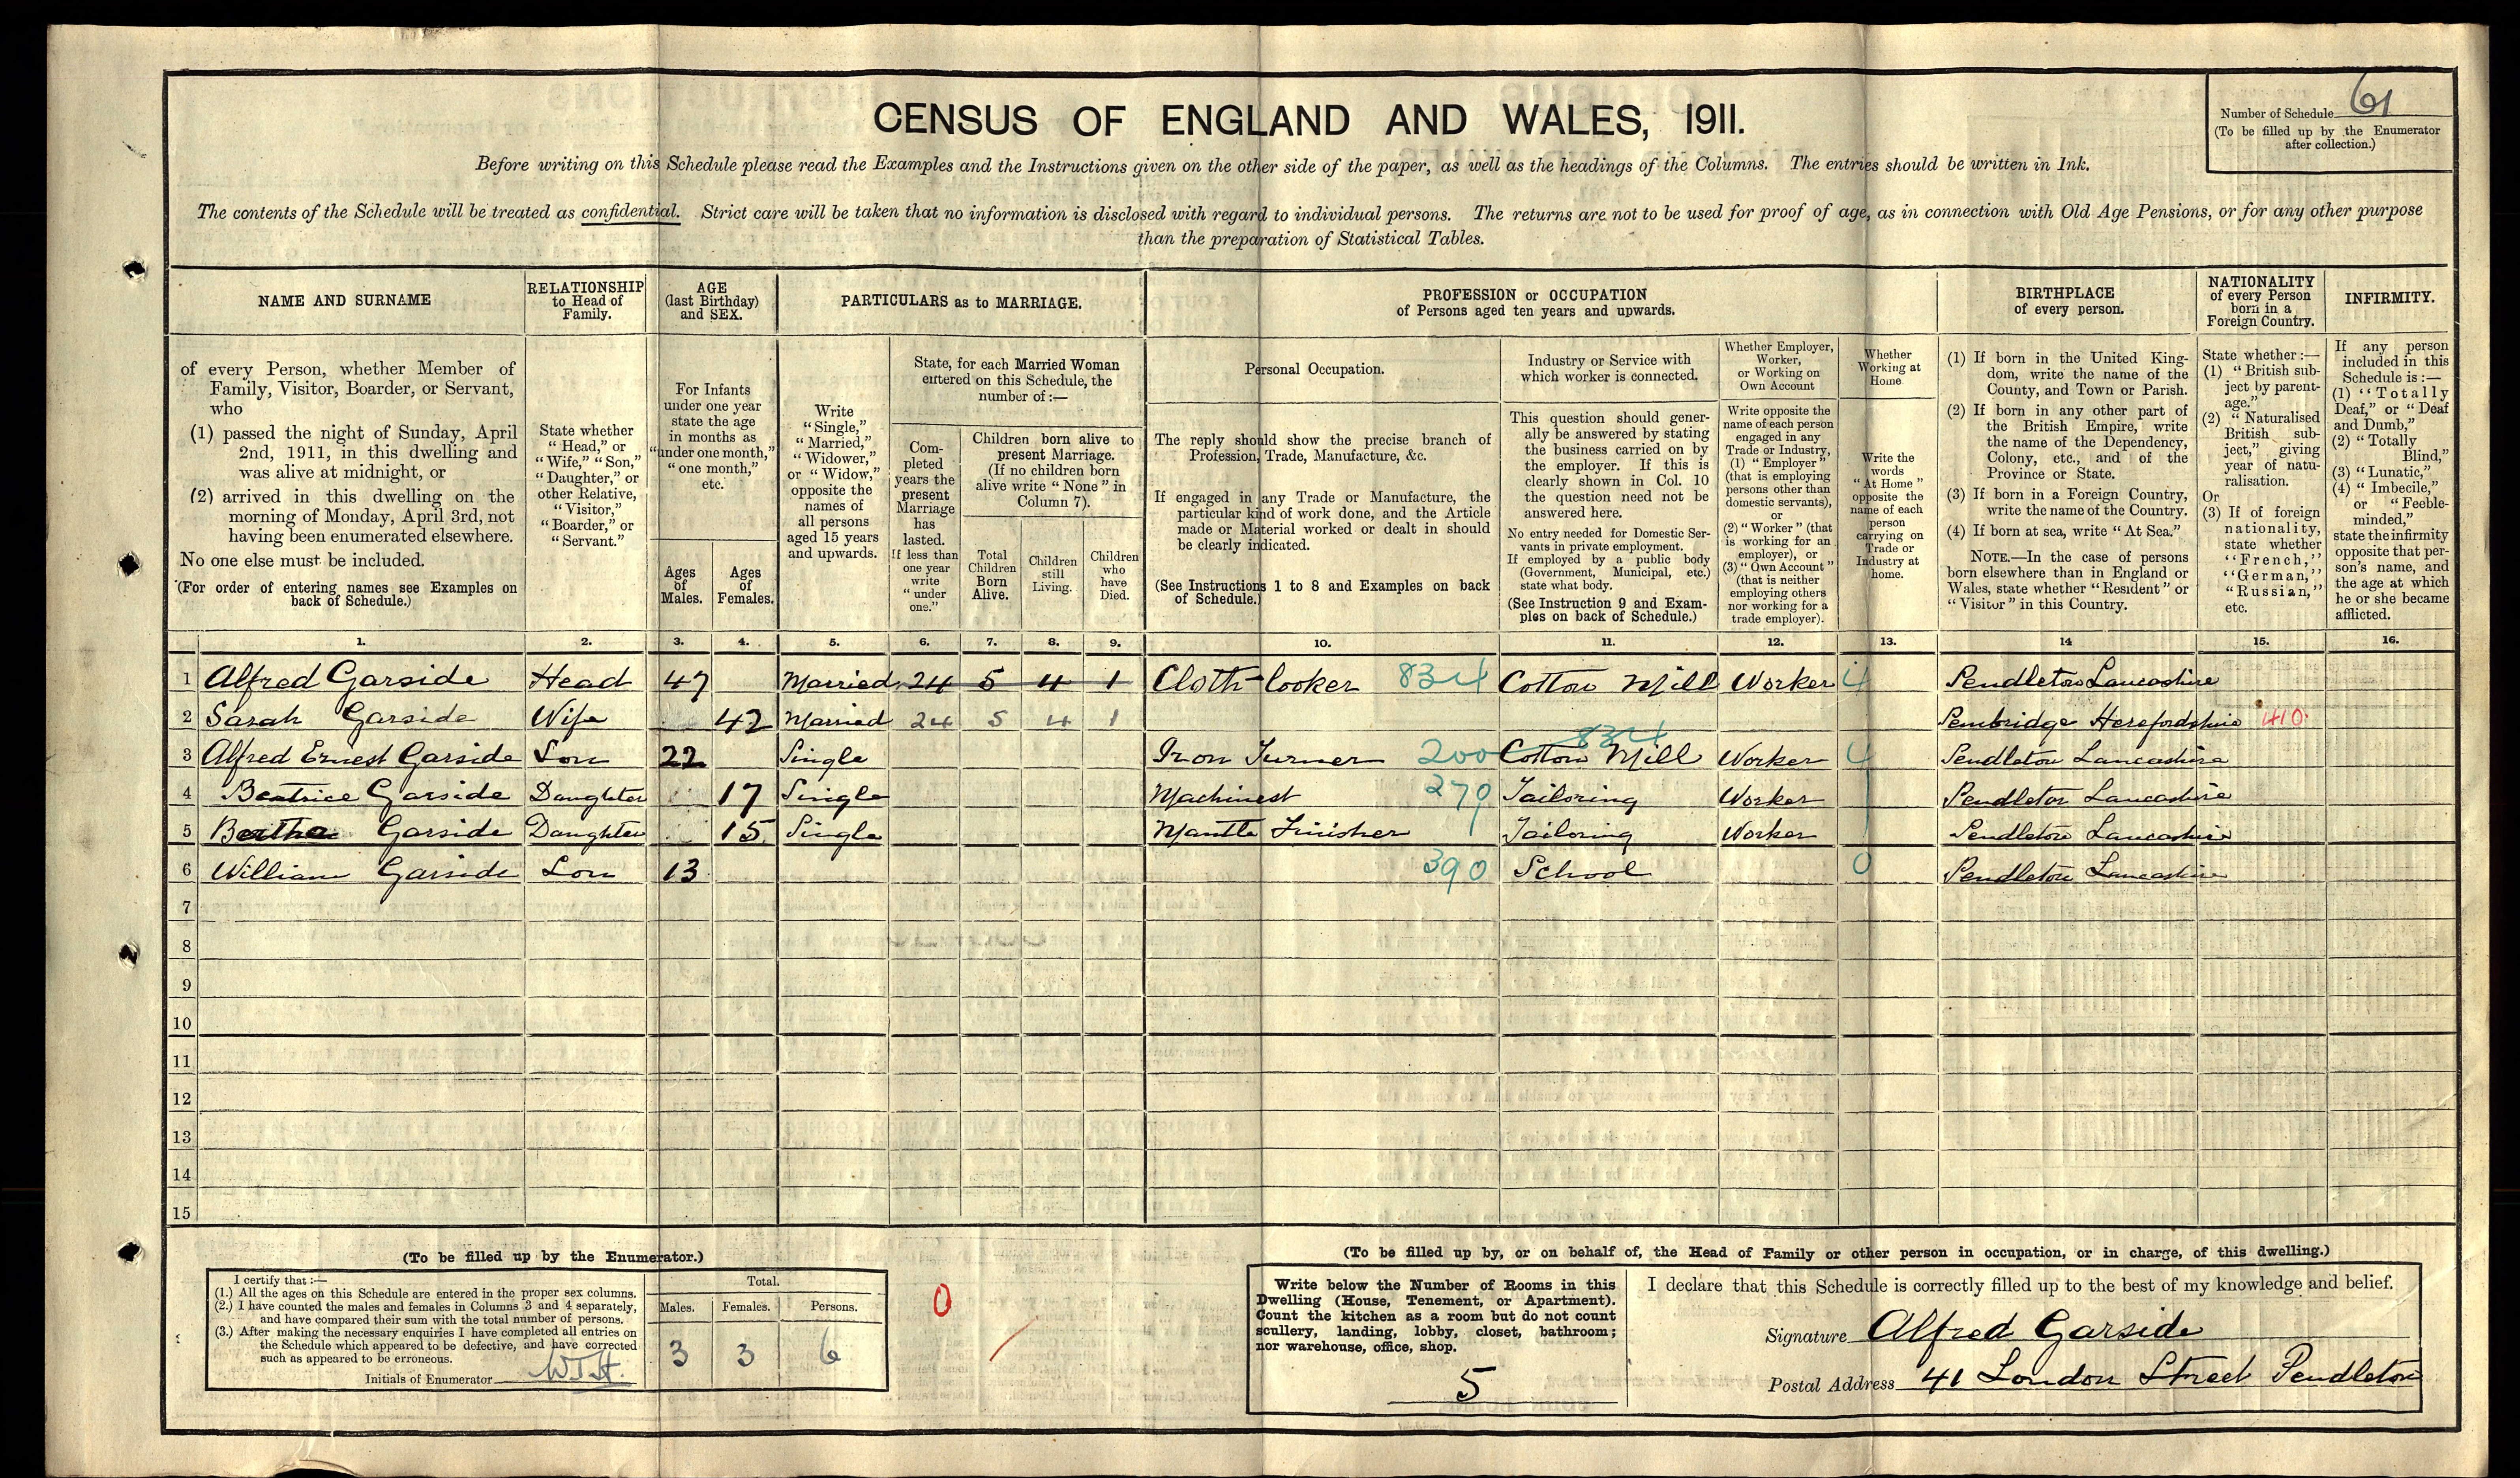 CENSUS OF ENGLAND AND WALES, 1911.
Number of Schedule 61
(To be filled up by the Enumerator
after collection.)
Before writing on this Schedule please read the Examples and the Instructions given on the other side of the paper, as well as the headings of the Columns. The entries should be written in Ink.
The contents of the Schedule will be treated as confidential. Strict care will be taken that no information is disclosed with regard to individual persons. The returns are not to be used for proof of age, as in connection with Old Age Pensions, or for any other purpose
than the preparation of Statistical Tables.
NAME AND SURNAME
of every Person, whether Member of
Family, Visitor, Boarder, or Servant,
who
(1) passed the night of Sunday, April
2nd, 1911, in this dwelling and
was alive at midnight, or
(2) arrived in this dwelling on the
morning of Monday, April 3rd, not
having been enumerated elsewhere.
No one else must be included.
(For order of entering names see Examples on
back of Schedule.)
RELATIONSHIP
to Head of
Family.
State whether
"Head," or
"Wife," "Son,"
"Daughter," or
other Relative,
"Visitor,"
"Boarder," or
"Servant."
AGE
(last Birthday)
and SEX.
For Infants
under one year
state the age
in months as
"under one month,"
"one month,"
etc.
Ages
of
Males.
Ages
of
Females.
PARTICULARS as to MARRIAGE.
Write
"Single,"
"Married,"
"Widower,"
or "Widow,"
opposite the
names of
all persons
aged 15 years
and upwards.
State, for each Married Woman
entered on this Schedule, the
number of:—
Com-
pleted
years the
present
Marriage
has
lasted.
If less than
one year
write
"under
one."
Children born alive to
present Marriage.
(If no children born
alive write "None" in
Column 7).
Total
Children
Born
Alive.
Children
still
Living.
Children
who
have
Died.
PROFESSION or OCCUPATION
of Persons aged ten years and upwards.
Personal Occupation.
The reply should show the precise branch of
Profession, Trade, Manufacture, &c.
If engaged in any Trade or Manufacture, the
particular kind of work done, and the Article
made or Material worked or dealt in should
be clearly indicated.
(See Instructions 1 to 8 and Examples on back
of Schedule.)
Industry or Service with
which worker is connected.
This question should gener-
ally be answered by stating
the business carried on by
the employer. If this is
clearly shown in Col. 10
the question need not be
answered here.
No entry needed for Domestic Ser-
vants in private employment.
If employed by a public body
(Government, Municipal, etc.)
state what body.
(See Instruction 9 and Exam-
ples on back of Schedule.)
Whether Employer,
Worker,
or Working on
Own Account
Write opposite the
name of each person
engaged in any
Trade or Industry,
(1) "Employer"
(that is employing
persons other than
domestic servants),
or
(2) "Worker" (that
is working for an
employer), or
(3) "Own Account"
(that is neither
employing others
nor working for a
trade employer).
Whether
Working at
Home.
Write the
words
"At Home"
opposite the
name of each
person
carrying on
Trade or
Industry at
home.
BIRTHPLACE
of every person.
(1) If born in the United King-
dom, write the name of the
County, and Town or Parish.
(2) If born in any other part of
the British Empire, write
the name of the Dependency,
Colony, etc., and of the
Province or State.
(3) If born in a Foreign Country,
write the name of the Country.
(4) If born at sea, write "At Sea."
NOTE.—In the case of persons
born elsewhere than in England or
Wales, state whether "Resident" or
"Visitor" in this Country.
NATIONALITY
of every Person
born in a
Foreign Country.
State whether:—
(1) "British sub-
ject by parent-
age."
(2) "Naturalised
British sub-
ject," giving
year of natu-
ralisation.
Or
(3) If of foreign
nationality,
state whether
"French,"
"German,"
"Russian,"
etc.
INFIRMITY.
If any person
included in this
Schedule is:—
(1) "Totally
Deaf," or "Deaf
and Dumb,"
(2) "Totally
Blind,"
(3) "Lunatic,"
(4) "Imbecile,"
or "Feeble-
minded,"
state the infirmity
opposite that per-
son's name, and
the age at which
he or she became
afflicted.
1. 2. 3. 4. 5. 6. 7. 8. 9. 10. 11. 12. 13. 14 15. 16.
1 Alfred Garside Head 47 Married 24 5 4 1 Cloth-looker 834 Cotton Mill Worker 4 Pendleton Lancashire
2 Sarah Garside Wife 42 Married 24 5 4 1 Pembridge Herefordshire 410.
3 Alfred Ernest Garside Son 22 Single Iron Turner 200 Cotton Mill 834 Worker 4 Pendleton Lancashire
4 Beatrice Garside Daughter 17 Single Machinest 279 Tailoring Worker Pendleton Lancashire
5 Bertha Garside Daughter 15 Single Mantle Finisher Tailoring Worker Pendleton Lancashire
6 William Garside Son 13 390 School 0 Pendleton Lancashire
7
8
9
10
11
12
13
14
15
(To be filled up by the Enumerator.)
I certify that:—
(1.) All the ages on this Schedule are entered in the proper sex columns.
(2.) I have counted the males and females in Columns 3 and 4 separately,
and have compared their sum with the total number of persons.
(3.) After making the necessary enquiries I have completed all entries on
the Schedule which appeared to be defective, and have corrected
such as appeared to be erroneous.
Initials of Enumerator
Total.
Males. Females. Persons.
3 3 6
0
(To be filled up by, or on behalf of, the Head of Family or other person in occupation, or in charge, of this dwelling.)
Write below the Number of Rooms in this
Dwelling (House, Tenement, or Apartment).
Count the kitchen as a room but do not count
scullery, landing, lobby, closet, bathroom;
nor warehouse, office, shop.
5
I declare that this Schedule is correctly filled up to the best of my knowledge and belief.
Signature Alfred Garside
Postal Address 41 London Street Pendleton